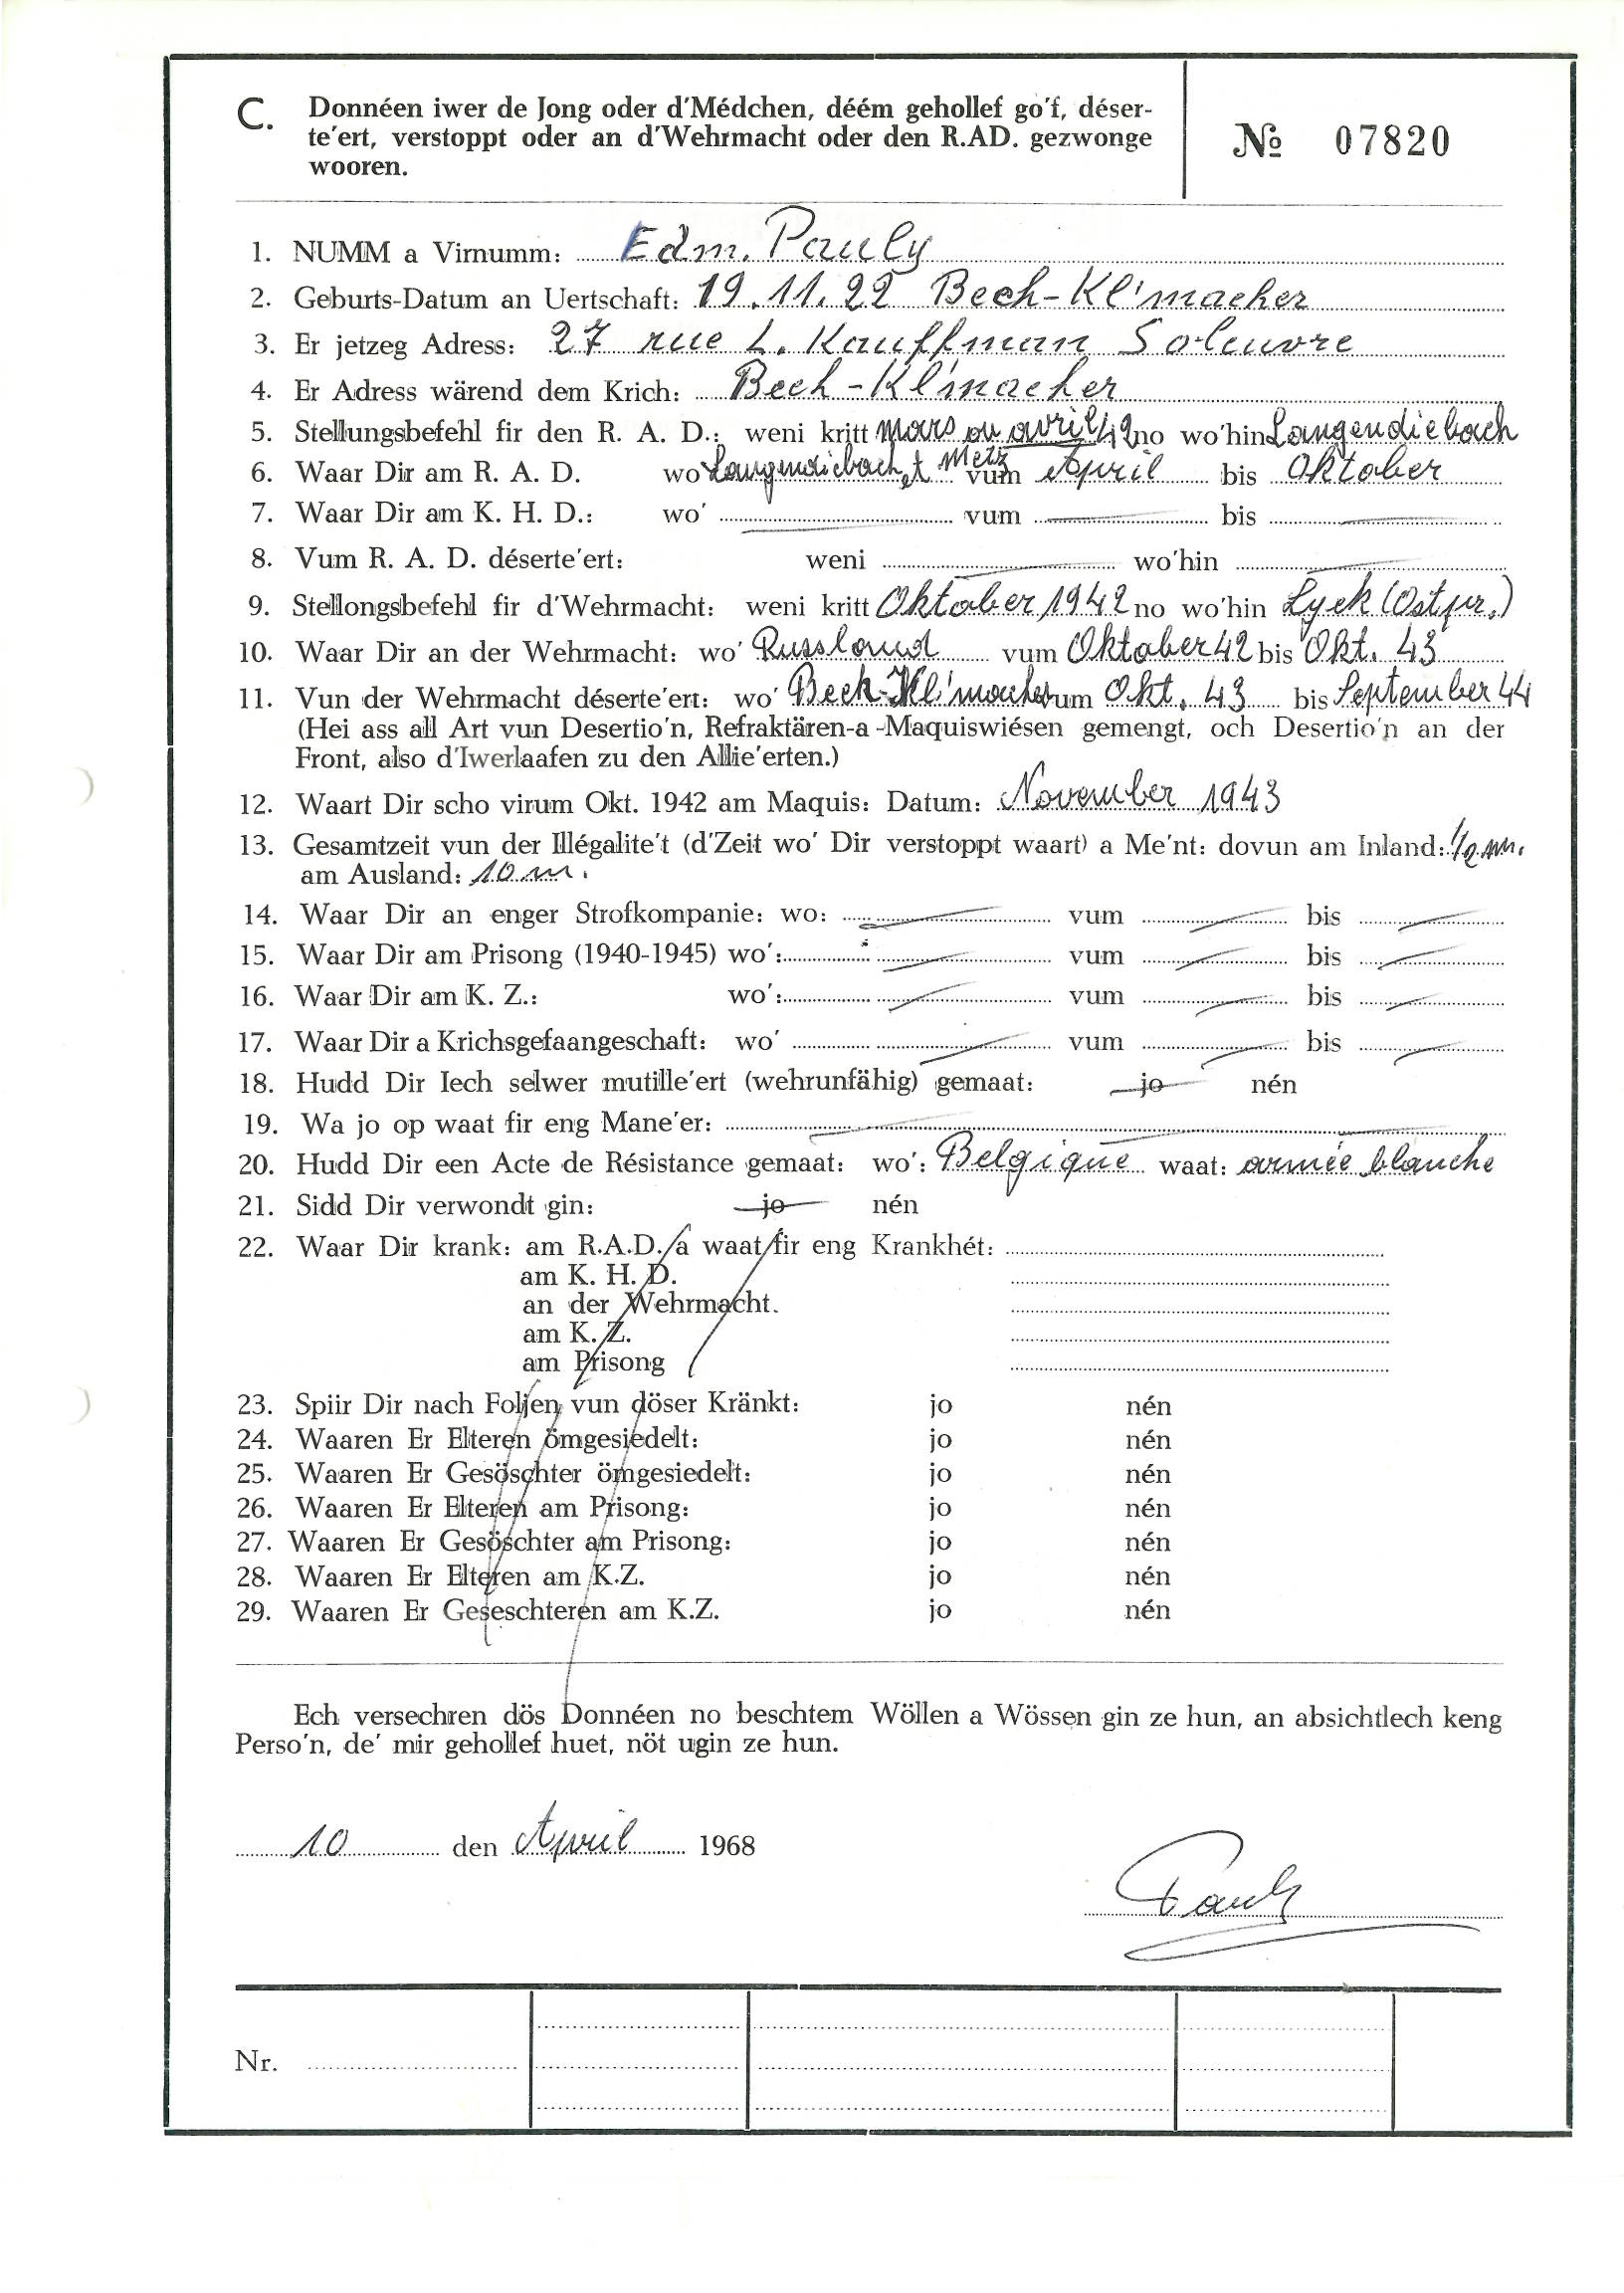 C. Donnéen iwer de Jong oder d'Médchen, déém gehollef go'f, déser-
te'ert, verstoppt oder an d'Wehrmacht oder den R.AD. gezwonge
wooren.
№ 07820
1. NUMM a Virnumm: Edm. Pauly
2. Geburts-Datum an Uertschaft: 19.11.22 Bech-Kl'macher
3. Er jetzeg Adress: 27 rue L. Kauffman Soleuvre
4. Er Adress wärend dem Krich: Bech-Kl'macher
5. Stellungsbefehl fir den R. A. D.: weni kritt mars ou avril 42 no wo'hin Langendiebach
6. Waar Dir am R. A. D. wo' Langendiebach et Metz vum April bis Oktober
7. Waar Dir am K. H. D.: wo' vum bis
8. Vum R. A. D. déserte'ert: weni wo'hin
9. Stellongsbefehl fir d'Wehrmacht: weni kritt Oktober 1942 no wo'hin Lyck (Ostpr.)
10. Waar Dir an der Wehrmacht: wo' Russland vum Oktober 42 bis Okt. 43
11. Vun der Wehrmacht déserte'ert: wo' Bech-Kl'macher vum Okt. 43 bis September 44
(Hei ass all Art vun Desertio'n, Refraktären-a-Maquiswiésen gemengt, och Desertio'n an der
Front, also d'Iwerlaafen zu den Allie'erten.)
12. Waart Dir scho virum Okt. 1942 am Maquis: Datum: November 1943
13. Gesamtzeit vun der Illégalite't (d'Zeit wo' Dir verstoppt waart) a Me'nt: dovun am Inland: 1/2 m.
am Ausland: 10 m.
14. Waar Dir an enger Strofkompanie: wo: vum bis
15. Waar Dir am Prisong (1940-1945) wo': vum bis
16. Waar Dir am K. Z.: wo': vum bis
17. Waar Dir a Krichsgefaangeschaft: wo' vum bis
18. Hudd Dir Iech selwer mutille'ert (wehrunfähig) gemaat: jo nén
19. Wa jo op waat fir eng Mane'er:
20. Hudd Dir een Acte de Résistance gemaat: wo': Belgique waat: armée blanche
21. Sidd Dir verwondt gin: jo nén
22. Waar Dir krank: am R.A.D. a waat fir eng Krankhét:
am K. H. D.
an der Wehrmacht.
am K. Z.
am Prisong
23. Spiir Dir nach Foljen vun döser Kränkt: jo nén
24. Waaren Er Elteren ömgesiedelt: jo nén
25. Waaren Er Gesöschter ömgesiedelt: jo nén
26. Waaren Er Elteren am Prisong: jo nén
27. Waaren Er Gesöschter am Prisong: jo nén
28. Waaren Er Elteren am K.Z. jo nén
29. Waaren Er Geseschteren am K.Z. jo nén
Ech versechren dös Donnéen no beschtem Wöllen a Wössen gin ze hun, an absichtlech keng
Perso'n, de' mir gehollef huet, nöt ugin ze hun.
10 den April 1968
Pauly
Nr.